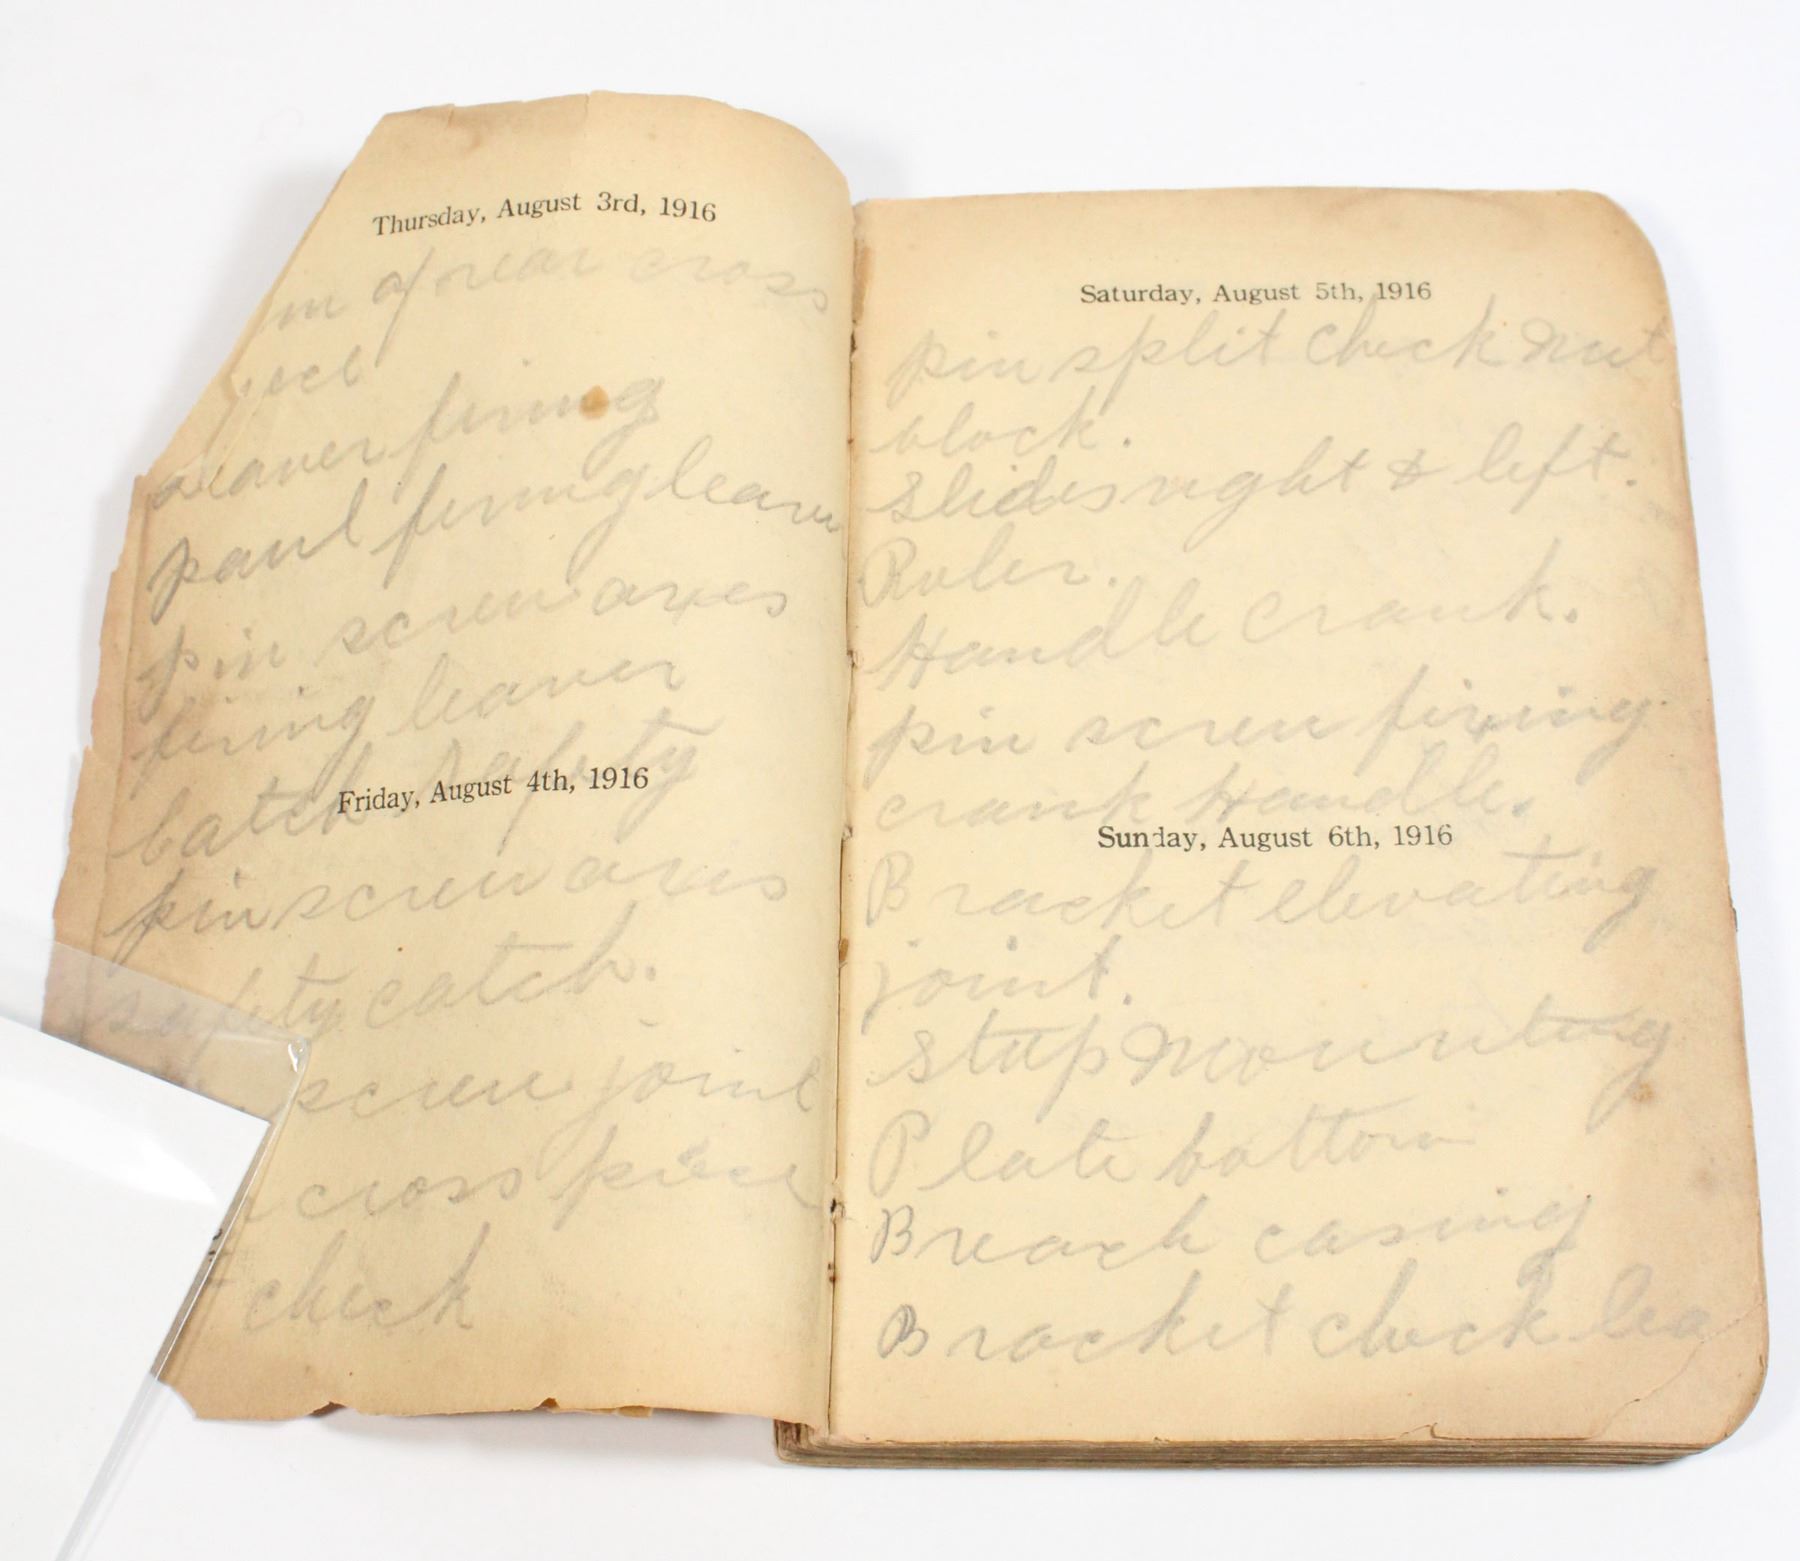 Thursday, August 3rd, 1916
of rear cross
leaver firing
paul firing leaver
pin screw axes
firing leaver
catch safety
Friday, August 4th, 1916
pin screw axis
safety catch.
screw joint
cross piece
check
Saturday, August 5th, 1916
pin split check nut
block.
slides right & left.
Roler.
Handle crank.
pin screw fixing
crank Handle.
Sunday, August 6th, 1916
Bracket elevating
joint.
stap mounting
Plate bottom
Breach casing
Bracket check lea